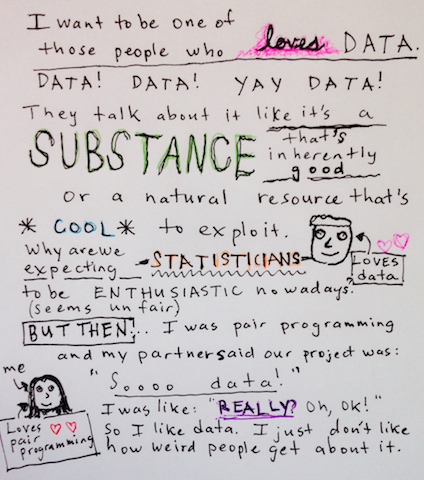 I want to be one of
those people who loves DATA.
DATA! DATA! YAY DATA!
They talk about it like it's a
SUBSTANCE that's inherently good
or a natural resource that's
* COOL * to exploit.
Why are we expecting STATISTICIANS
LOVES data
to be ENTHUSIASTIC nowadays?
(seems unfair)
BUT THEN!... I was pair programming
and my partner said our project was:
"Soooo data!"
me
Loves ♡♡ pair programming
I was like: "REALLY? Oh, OK!"
So I like data. I just don't like
how weird people get about it.